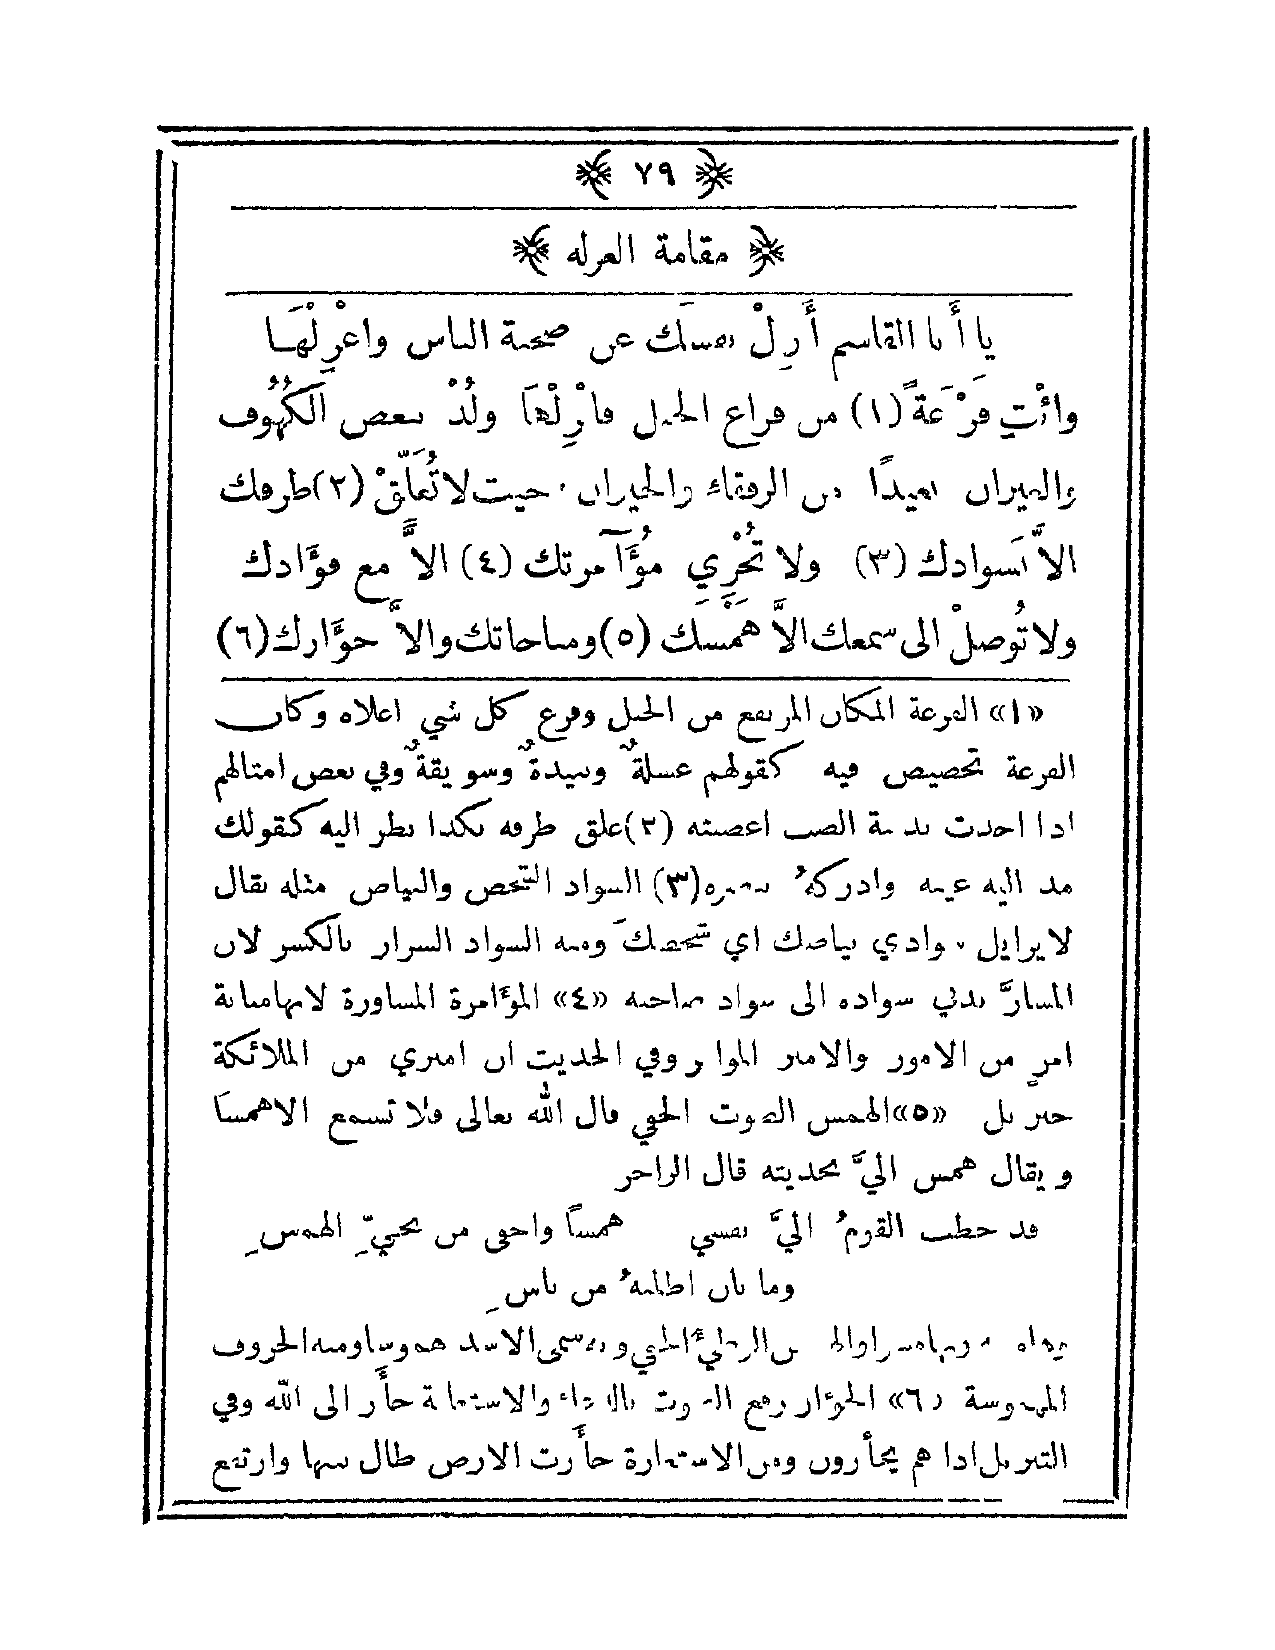 ٧٩
مقامة العزلة
يا أبا القاسم أزِلْ نفسك عن صحبة الناس واعْزِلْها
وائْتِ فَرْعَةً (١) من فراع الجبل فانْزِلْها ولُذْ ببعض الكُهُوف
والغيران بعيداً من الرفقاء والجيران حيث لا تُعَلِّقْ (٢) طرفك
الاَّ بَسوادك (٣) ولا تُجْرِي مُؤَآمرتك (٤) الاَّ مع فؤَادك
ولا تُوصلْ الى سمعك الاَّ هَمْسك (٥) ومناجاتك والاَّ جؤَارك (٦)
«١» الفرعة المكان المرتفع من الجبل وفرع كل شي اعلاه وكان
الفرعة تخصيص فيه كقولهم عسلةٌ ونبيذةٌ وسويقةٌ وفي بعض امثالهم
اذا اخذت بذنبة الضب اغضبته (٢) علق طرفه بكذا نظر اليه كقولك
مد اليه عينه وادركهُ ببصره (٣) السواد الشخص والبياض مثله يقال
لا يزايل سوادي بياضك اي شخصك ومنه السواد السرار بالكسر لان
المسارَّ يدني سواده الى سواد صاحبه «٤» المؤامرة المشاورة لانها مباثة
امرٍ من الامور والامير المؤامر وفي الحديث ان اميري من الملائكة
جبريل «٥» الهمس الصوت الخفي قال الله تعالى فلا تسمع الا همسا
و يقال همس اليَّ بحديثه قال الراجز
قد خطب القومُ اليَّ نفسي همساً واخفى من نجيِّ الهمسِ
وما بان اطلبهُ من باسِ
الاسد هموسا ومنه الحروف
المهموسة «٦» الجؤار رفع الصوت بالدعاء والاستغاثة جأر الى الله وفي
التنزيل اذا هم يجأرون ومن الاستعارة جأرت الارض طال نبتها وارتفع